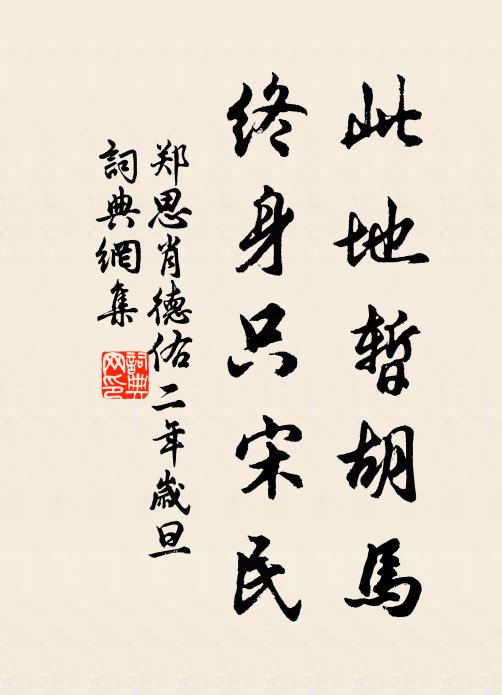 此地暫胡馬
終身只宋民
郑思肖德佑二年歲旦
詞典網集
詞典网印